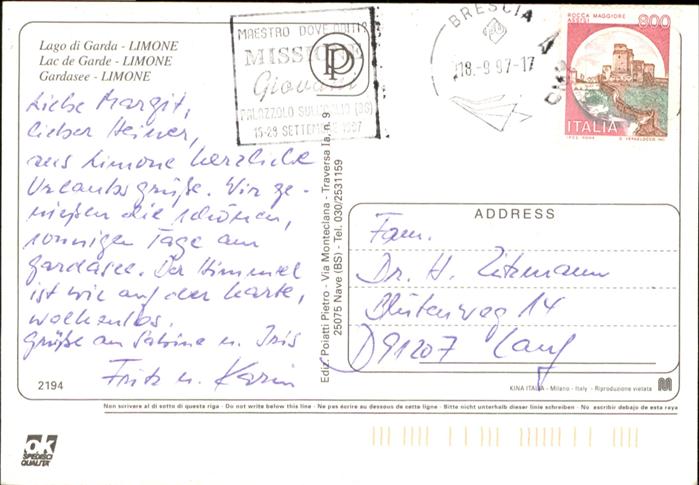 Lago di Garda - LIMONE
Lac de Garde - LIMONE
Gardasee - LIMONE
MAESTRO DOVE ABITI?
MISSIONE
Giovani
PALAZZOLO SULL'OGLIO (BS)
15-29 SETTEMBRE 1997
PP
BRESCIA
18-9 97-17
ROCCA MAGGIORE
ASSISI
800
ITALIA
Liebe Margit,
lieber Heiner,
aus Limone herzliche
Urlaubsgrüße. Wir ge-
nießen die schönen,
sonnigen Tage am
Gardasee. Der Himmel
ist wie auf der Karte,
wolkenlos.
Grüße an Sabine u. Iris
Fritz u. Karin
2194
Ediz. Poiatti Pietro - Via Monteclana - Traversa Ia, n. 9
25075 Nave (BS) - Tel. 030/2531159
ADDRESS
Fam.
Dr. H. Zitzmann
Blütenweg 14
D 91207 Lauf
KINA ITALIA - Milano - Italy - Riproduzione vietata
Non scrivere al di sotto di questa riga - Do not write below this line - Ne pas écrire au dessous de cette ligne - Bitte nicht unterhalb dieser linie schreiben - No escribir debajo de esta raya
ok
SPEDISCI
QUALITA'